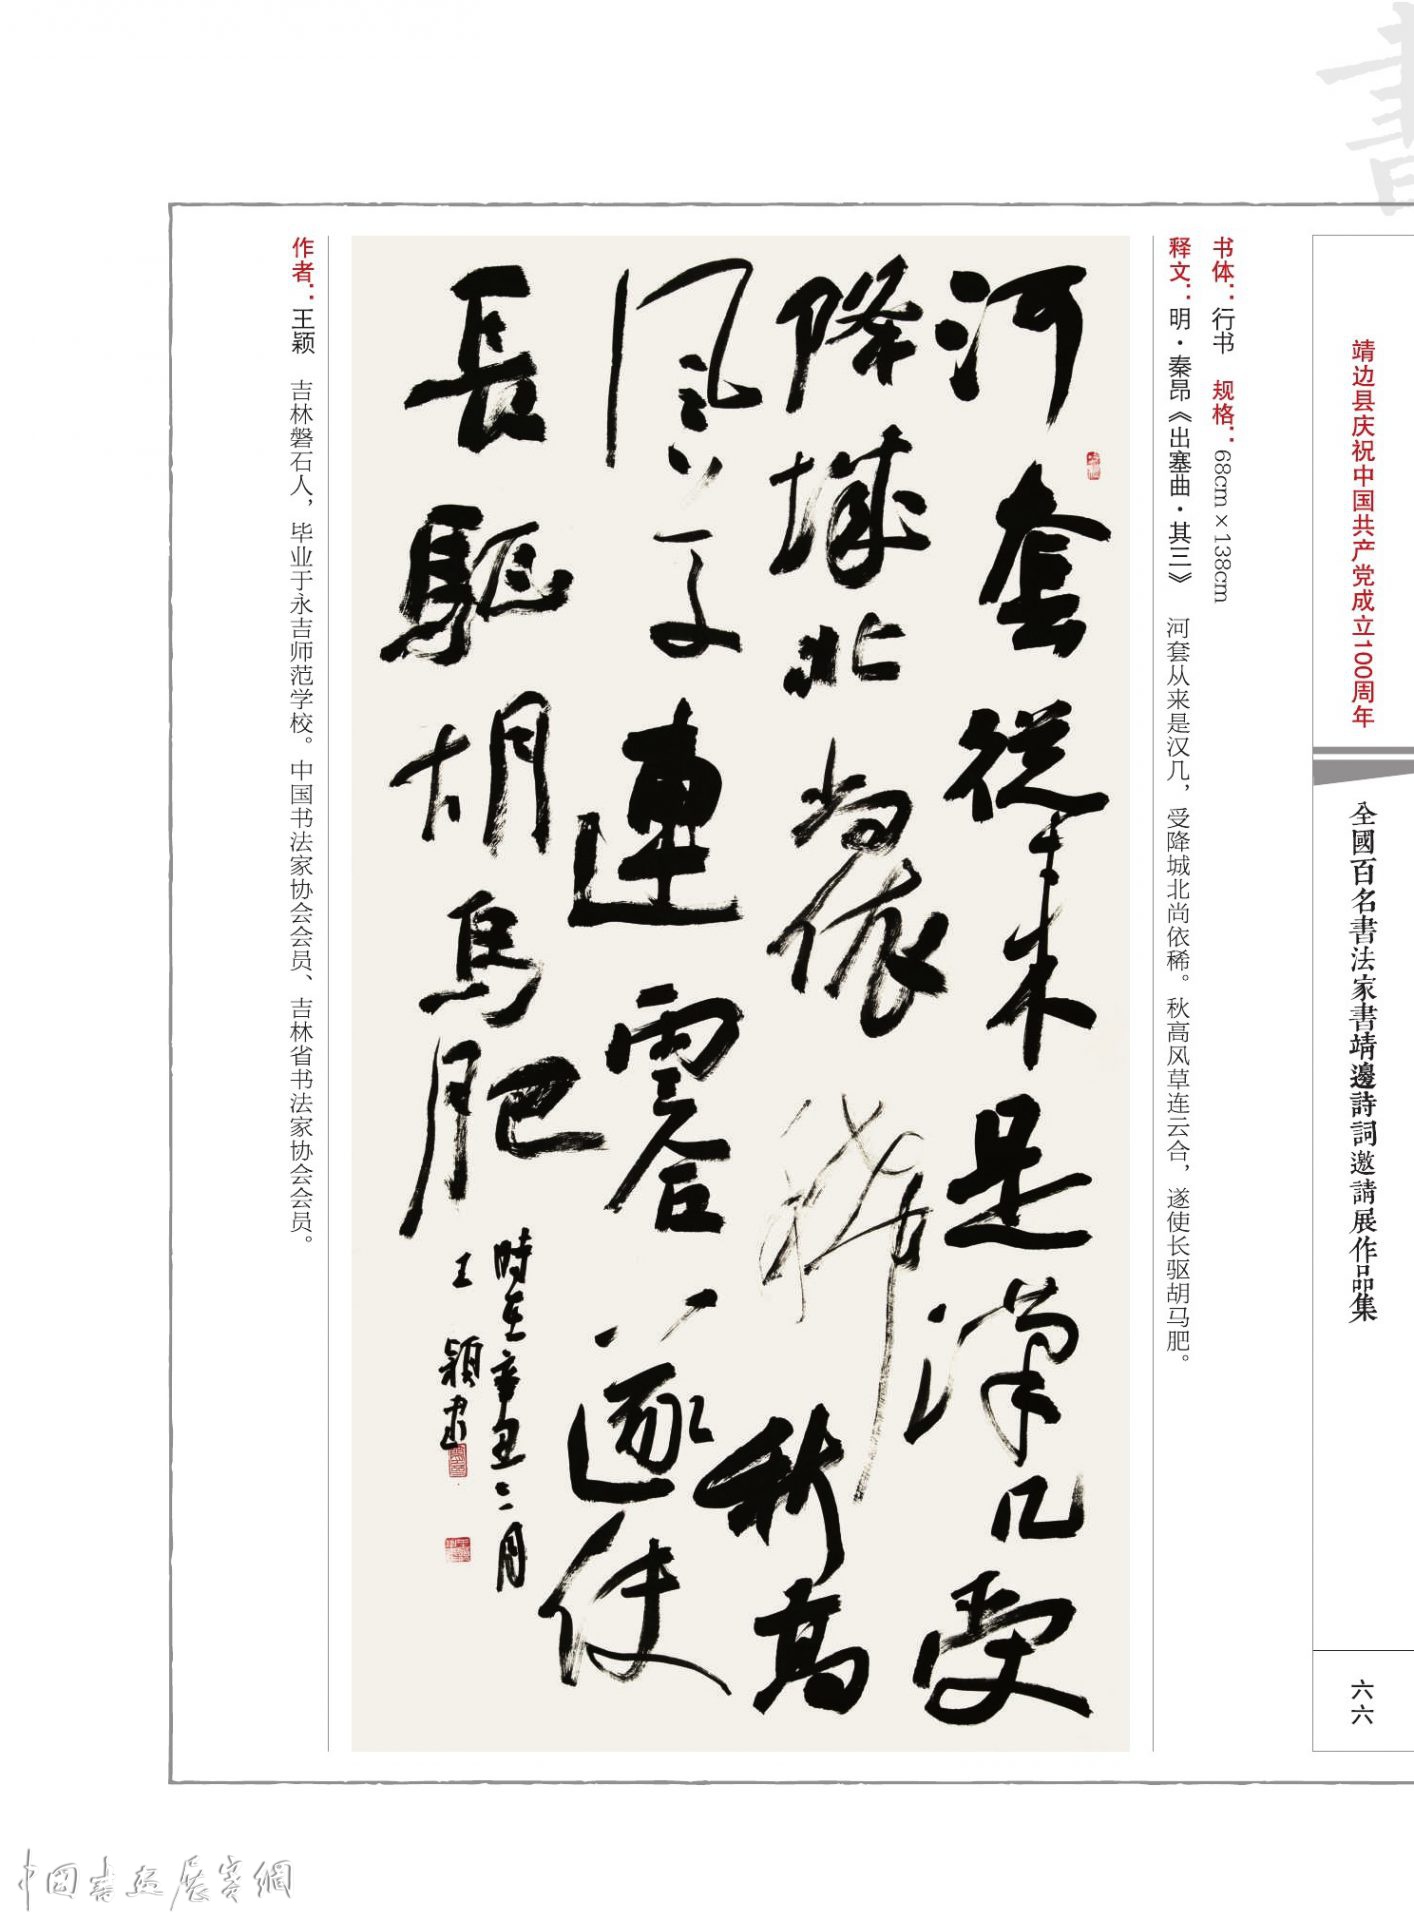 靖边县庆祝中国共产党成立100周年
全國百名書法家書靖邊詩詞邀請展作品集
六六
书体：行书 规格：68cm×138cm
释文：明·秦昂《出塞曲·其三》 河套从来是汉几，受降城北尚依稀。秋高风草连云合，遂使长驱胡马肥。
河套從来是漢几受
降城北尚依稀秋高
風草連雲合遂使
長驅胡馬肥
時在辛丑二月
王穎書
作者：王颖 吉林磐石人，毕业于永吉师范学校。中国书法家协会会员、吉林省书法家协会会员。
中國書画展賽網
書